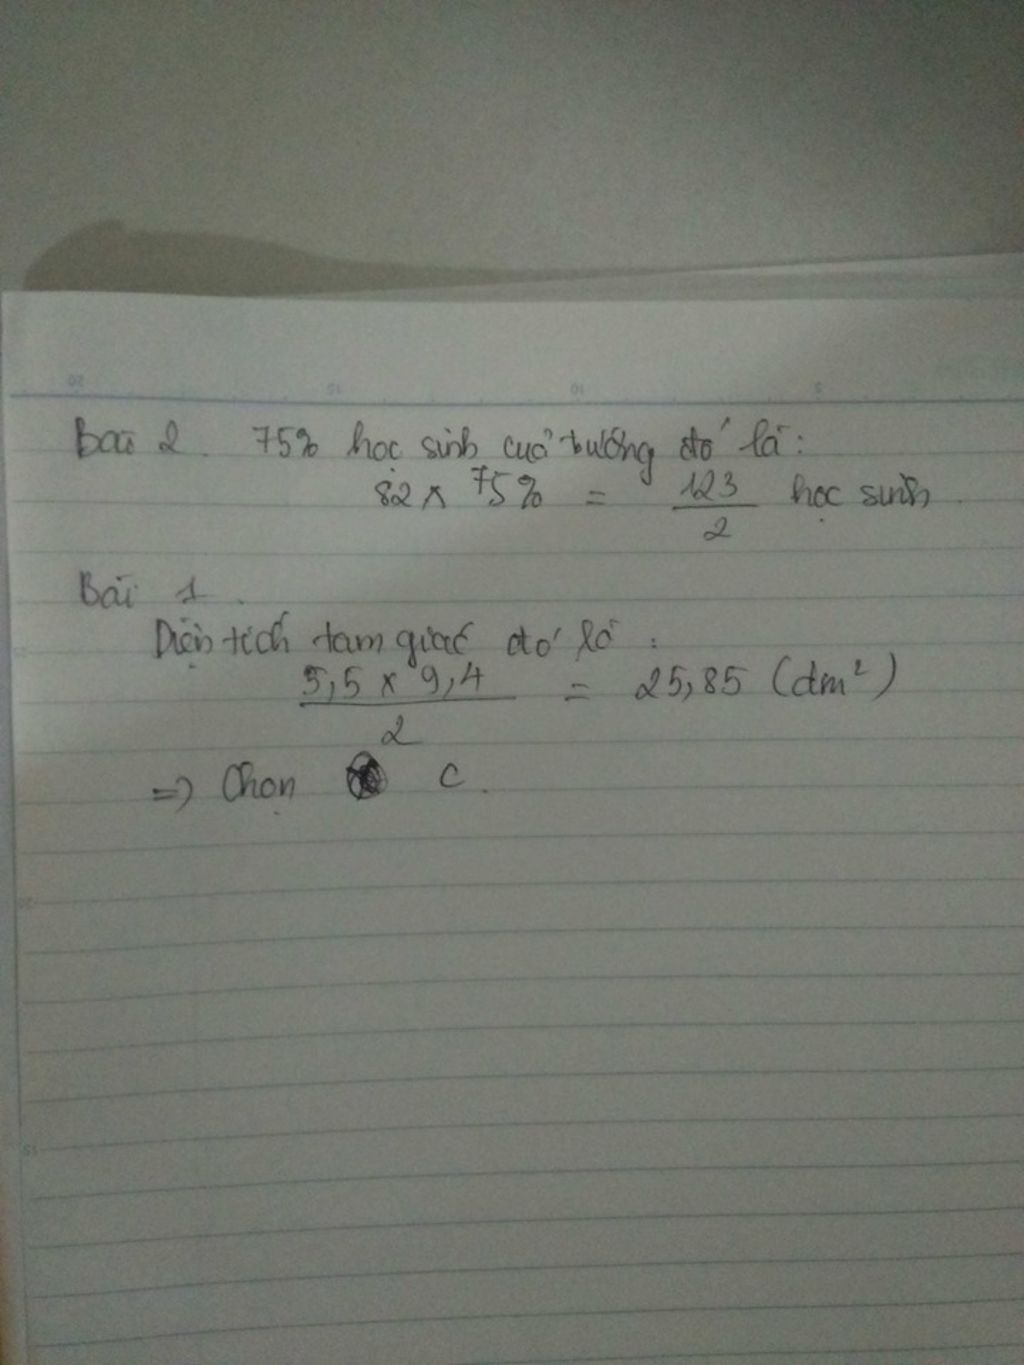 Bài 2. 75% học sinh của trường đó là:
82 x 75% = 123/2 học sinh.
Bài 1.
Diện tích tam giác đó là:
5,5 x 9,4 / 2 = 25,85 (dm²)
=> Chọn C.